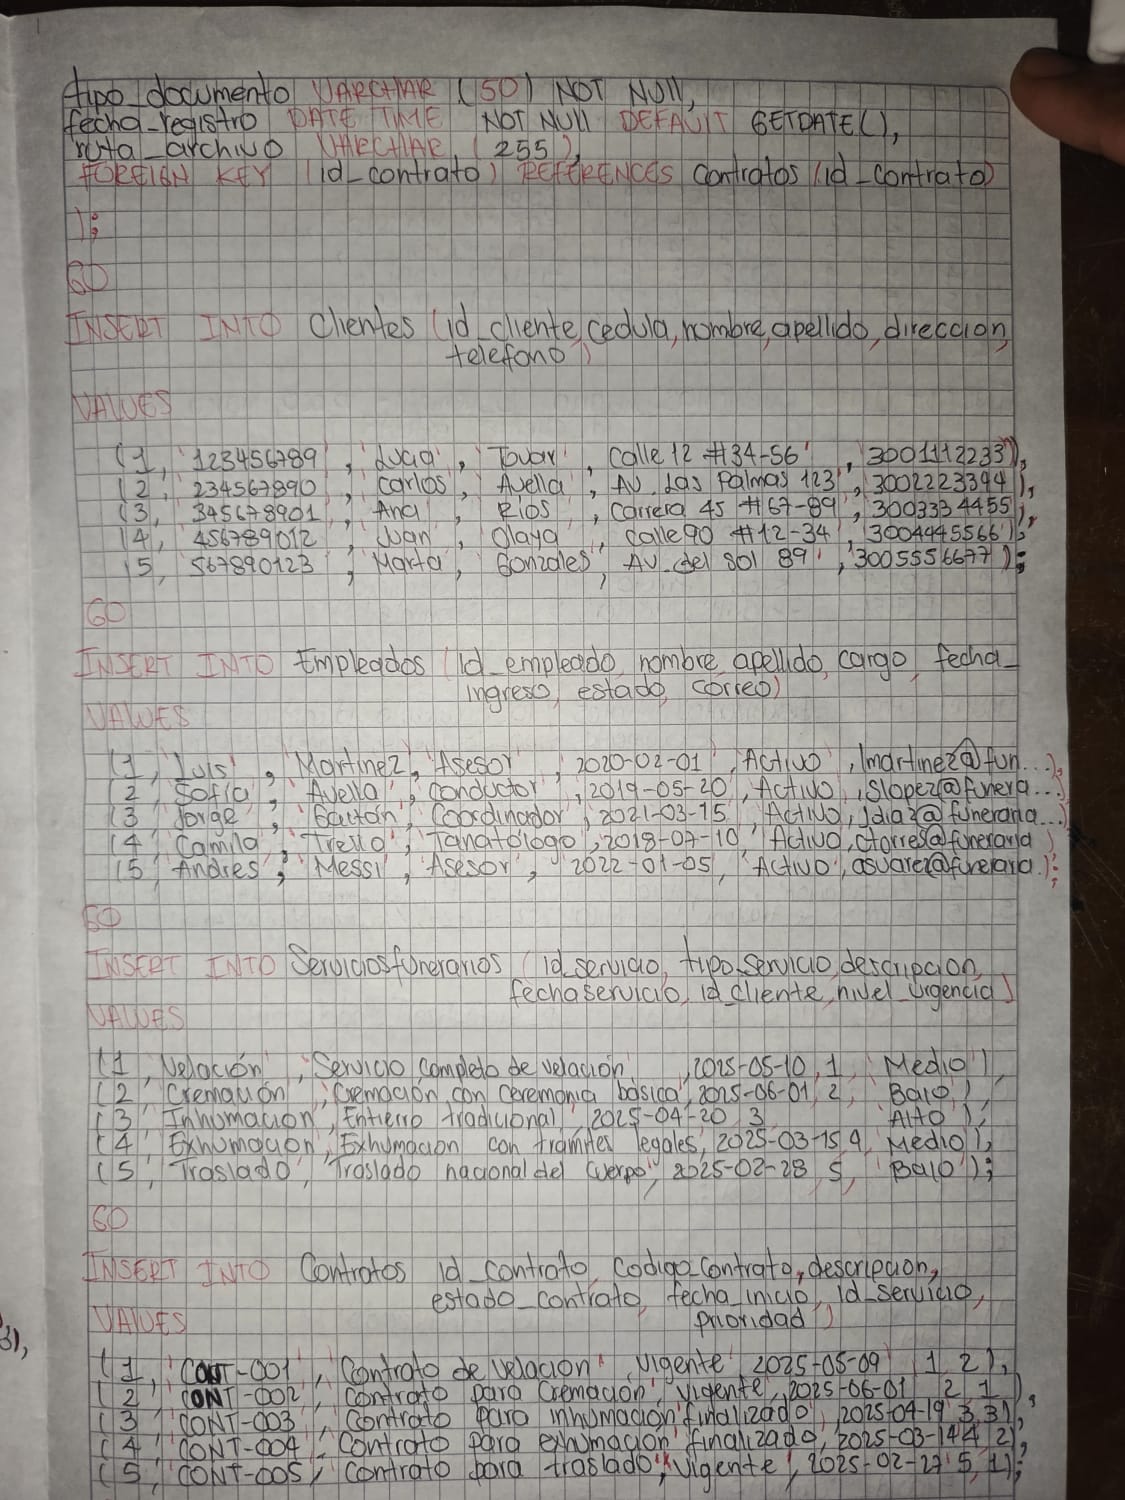 tipo_documento VARCHAR (50) NOT NULL,
fecha_registro DATE TIME NOT NULL DEFAULT GETDATE(),
ruta_archivo VARCHAR (255),
FOREIGN KEY (id_contrato) REFERENCES Contratos (id_contrato)
);
GO
INSERT INTO Clientes (id_cliente, cedula, nombre, apellido, direccion, 
telefono)
VALUES
(1, '123456789', 'Lucia', 'Tovar', 'Calle 12 #34-56', '3001112233'),
(2, '234567890', 'Carlos', 'Avella', 'AV. Las Palmas 123', '3002223344'),
(3, '345678901', 'Ana', 'Rios', 'Carrera 45 #67-89', '3003334455'),
(4, '456789012', 'Juan', 'Olaya', 'Calle 90 #12-34', '3004445566'),
(5, '567890123', 'Marta', 'Gonzales', 'AV. del sol 89', '3005556677');
GO
INSERT INTO Empleados (id_empleado, nombre, apellido, cargo, fecha_
ingreso, estado, correo)
VALUES
(1, 'Luis', 'Martinez', 'Asesor', '2020-02-01', 'Activo', 'lmartinez@fun...'),
(2, 'Sofia', 'Avella', 'Conductor', '2019-05-20', 'Activo', 'slopez@funera...'),
(3, 'Jorge', 'Gaitán', 'Coordinador', '2021-03-15', 'Activo', 'jdiaz@funeraria...')
(4, 'Camila', 'Trello', 'Tanatólogo', '2018-07-10', 'Activo', 'ctorres@funeraria')
(5, 'Andres', 'Messi', 'Asesor', '2022-01-05', 'Activo', 'asuarez@funeraria.');
GO
INSERT INTO Serviciosfunerarios (id_servicio, tipo_servicio, descripcion,
fechaservicio, id_cliente, nivel_urgencia)
VALUES
(1, 'Velación', 'Servicio completo de velación', '2025-05-10', 1, 'Medio'),
(2, 'Cremación', 'Cremación con ceremonia básica', '2025-06-01', 2, 'Bajo'),
(3, 'Inhumacion', 'Entierro tradicional', '2025-04-20', 3, 'Alto'),
(4, 'Exhumacion', 'Exhumacion con tramites legales', '2025-03-15', 4, 'Medio'),
(5, 'Traslado', 'Traslado nacional del cuerpo', '2025-02-28', 5, 'Bajo');
GO
INSERT INTO Contratos id_contrato, codigo_contrato, descripcion,
estado_contrato, fecha_inicio, id_servicio,
prioridad)
VALUES
(1, 'CONT-001', 'Contrato de velacion', 'Vigente', '2025-05-09', 1, 2),
(2, 'CONT-002', 'Contrato para Cremación', 'Vigente', '2025-06-01', 2, 1),
(3, 'CONT-003', 'Contrato para inhumacion', 'finalizado', '2025-04-19', 3, 3),
(4, 'CONT-004', 'Contrato para exhumacion', 'finalizado', '2025-03-14', 4, 2),
(5, 'CONT-005', 'Contrato para traslado', 'Vigente', '2025-02-27', 5, 1);